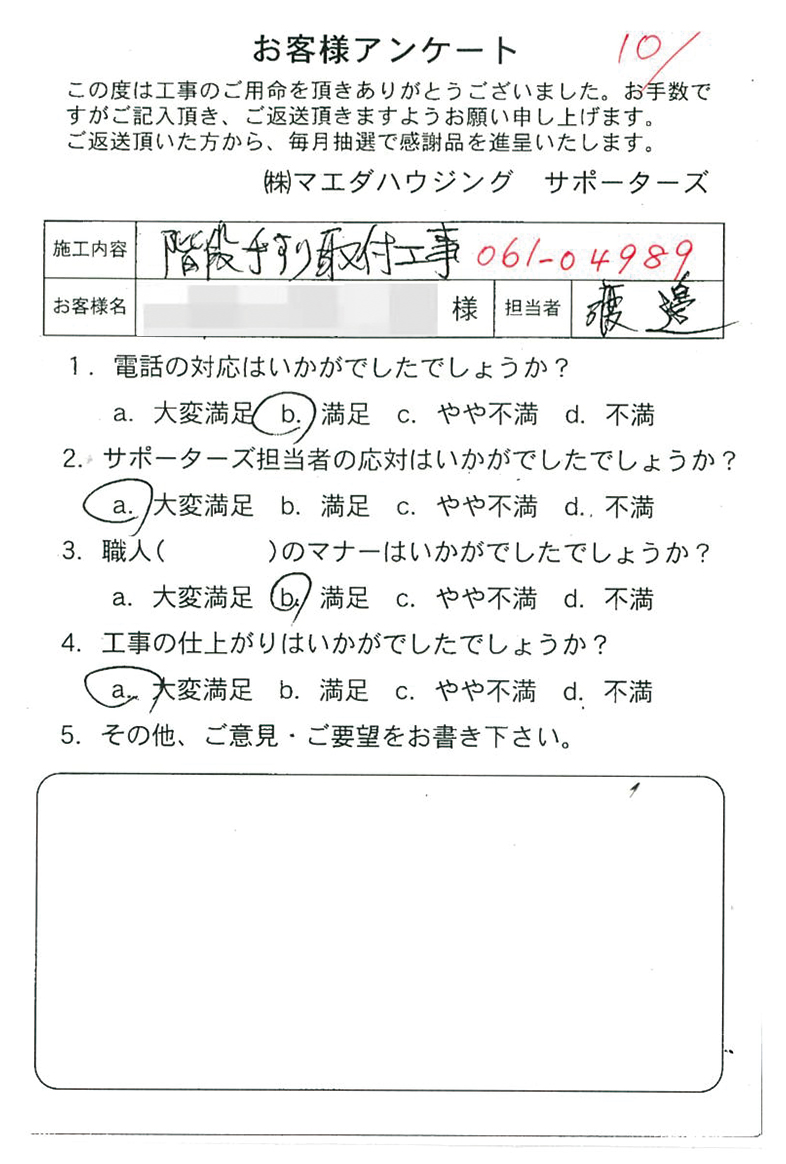 お客様アンケート 10/
この度は工事のご用命を頂きありがとうございました。お手数で
すがご記入頂き、ご返送頂きますようお願い申し上げます。
ご返送頂いた方から、毎月抽選で感謝品を進呈いたします。
㈱マエダハウジング サポーターズ
施工内容 階段手すり取付工事 061-04989
お客様名 様 担当者 渡邉
1. 電話の対応はいかがでしたでしょうか？
a. 大変満足 b. 満足 c. やや不満 d. 不満
2. サポーターズ担当者の応対はいかがでしたでしょうか？
a. 大変満足 b. 満足 c. やや不満 d. 不満
3. 職人( )のマナーはいかがでしたでしょうか？
a. 大変満足 b. 満足 c. やや不満 d. 不満
4. 工事の仕上がりはいかがでしたでしょうか？
a. 大変満足 b. 満足 c. やや不満 d. 不満
5. その他、ご意見・ご要望をお書き下さい。